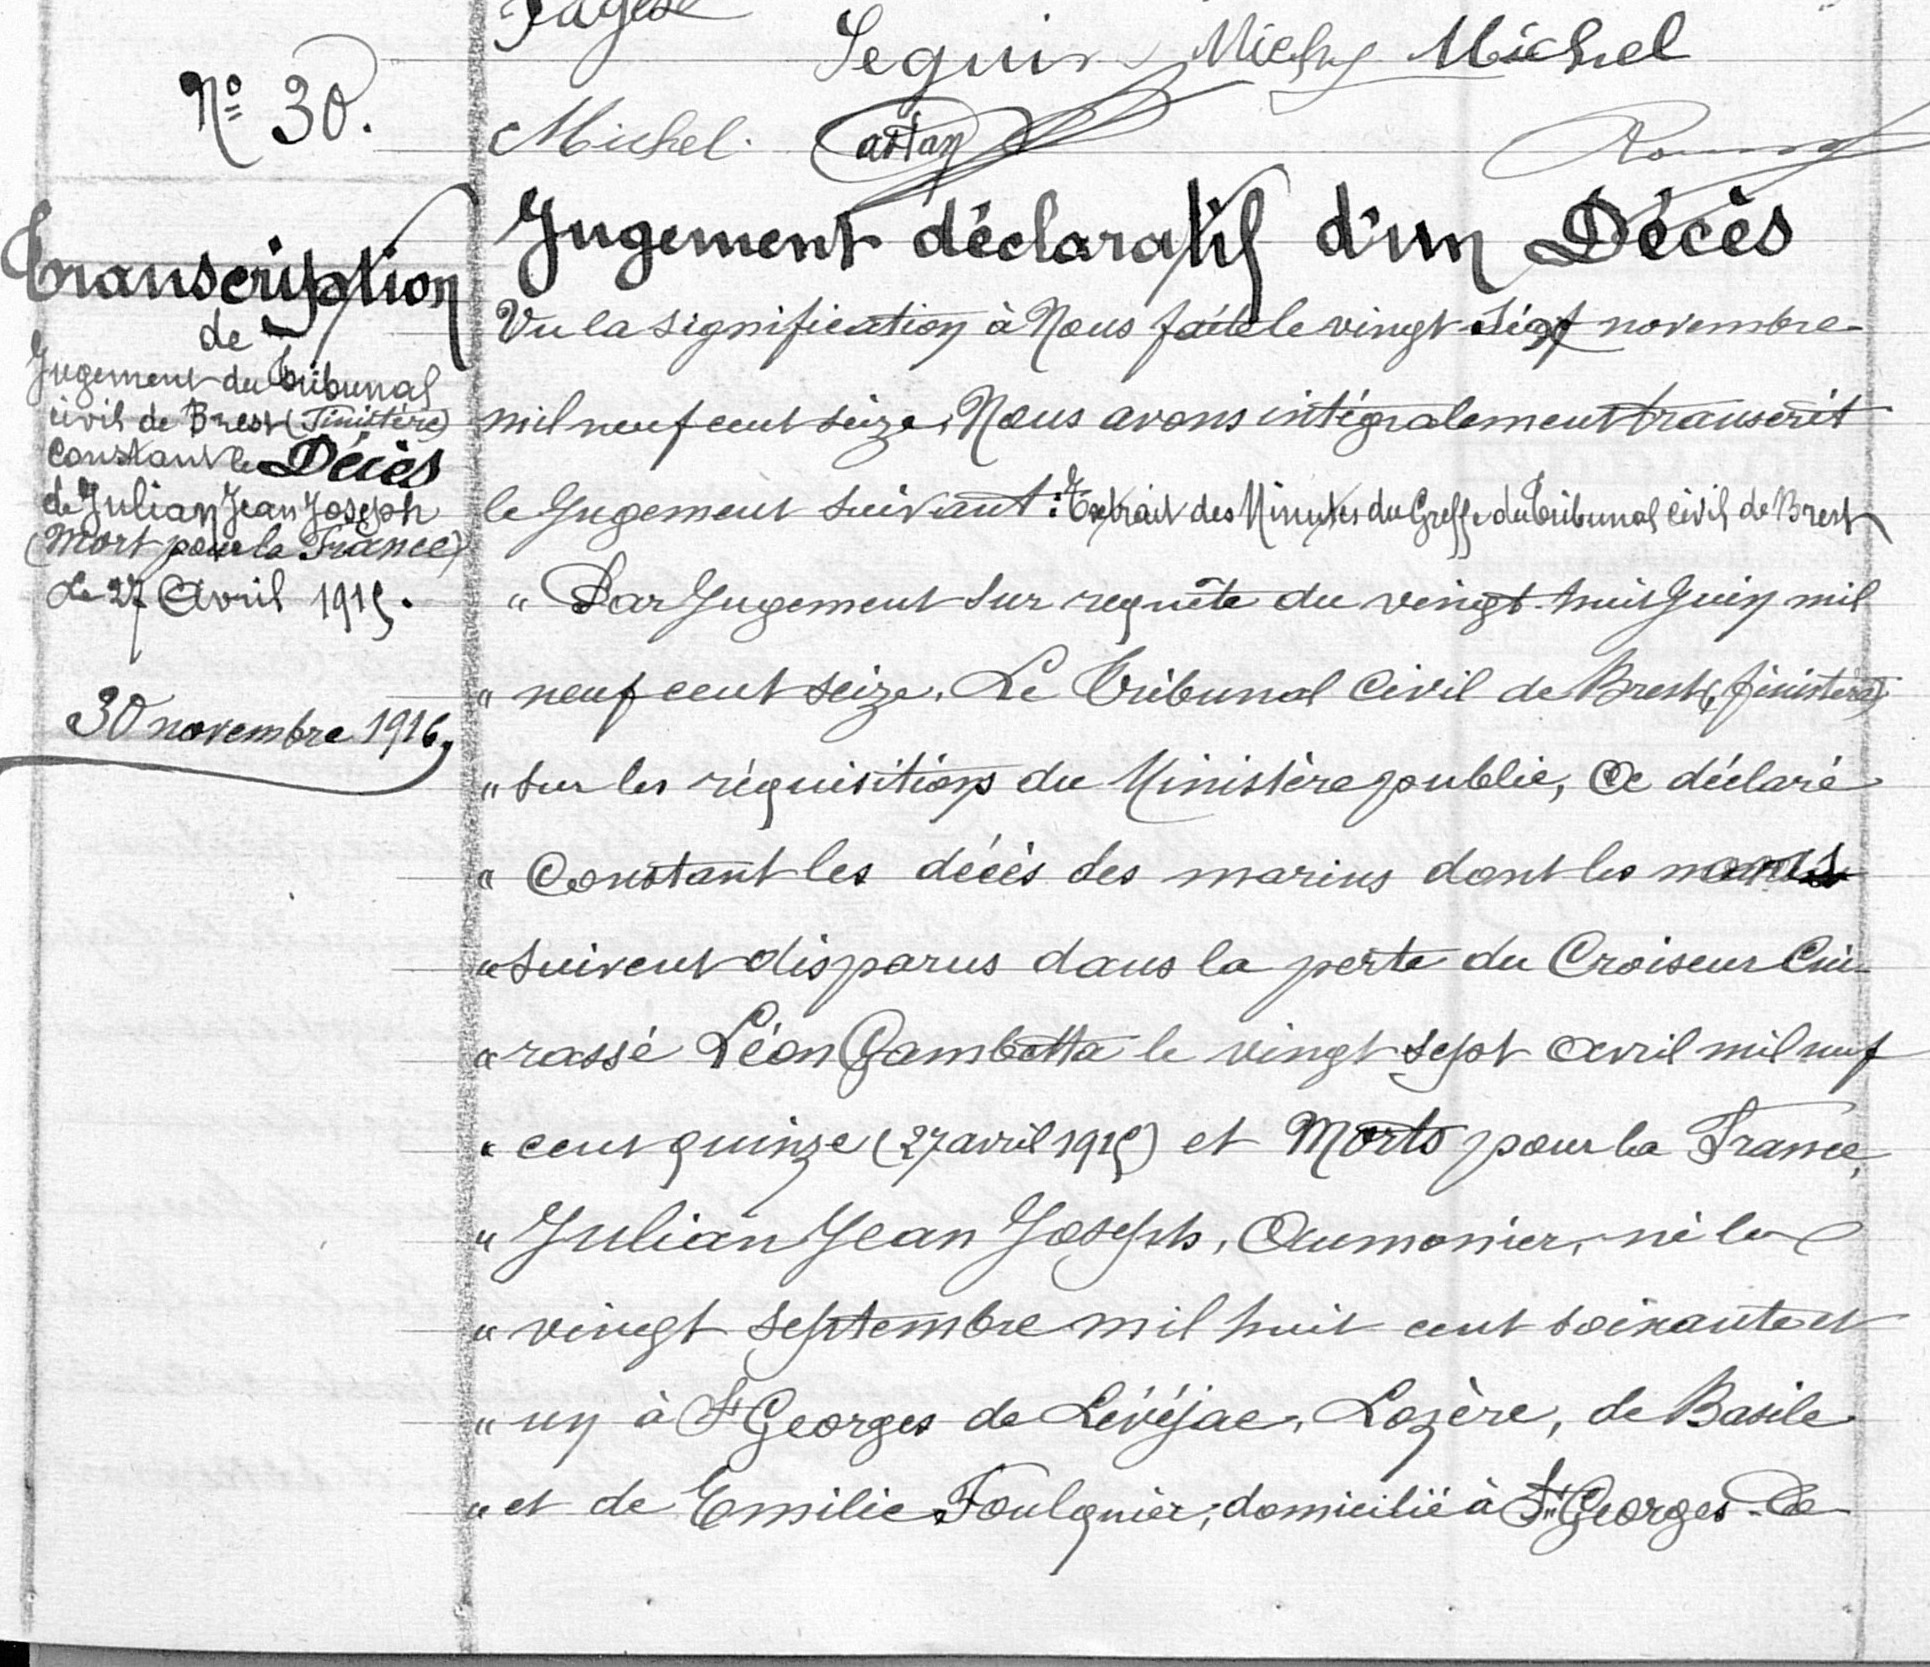 Seguin Michel Michel
Michel. Castan
N° 30.
Transcription
de
Jugement du Tribunal
civil de Brest (Finistère)
Constant le Décès
de Julian Jean Joseph
(Mort pour la France)
Le 27 Avril 1915.
30 novembre 1916,
Jugement déclaratif d'un Décès
Vu la signification à Nous faite le vingt sept novembre
mil neuf cent seize, Nous avons intégralement transcrit
le Jugement suivant : Extrait des Minutes du Greffe du Tribunal civil de Brest
" Par Jugement sur requête du vingt-huit Juin mil
" neuf cent seize. Le Tribunal Civil de Brest (finistère)
" sur les réquisitions du Ministère public, a déclaré
" Constant les décès des marins dont les noms
" suivent disparus dans la perte du Croiseur Cui-
" rassé Léon Gambetta le vingt sept avril mil neuf
" cent quinze (27 avril 1915) et Morts pour la France,
" Julian Jean Joseph, Aumonier, né le
" vingt septembre mil huit cent soixante et
" un à St Georges de Lévéjac, Lozère, de Basile
" et de Emilie Foulquier, domicilié à St Georges de